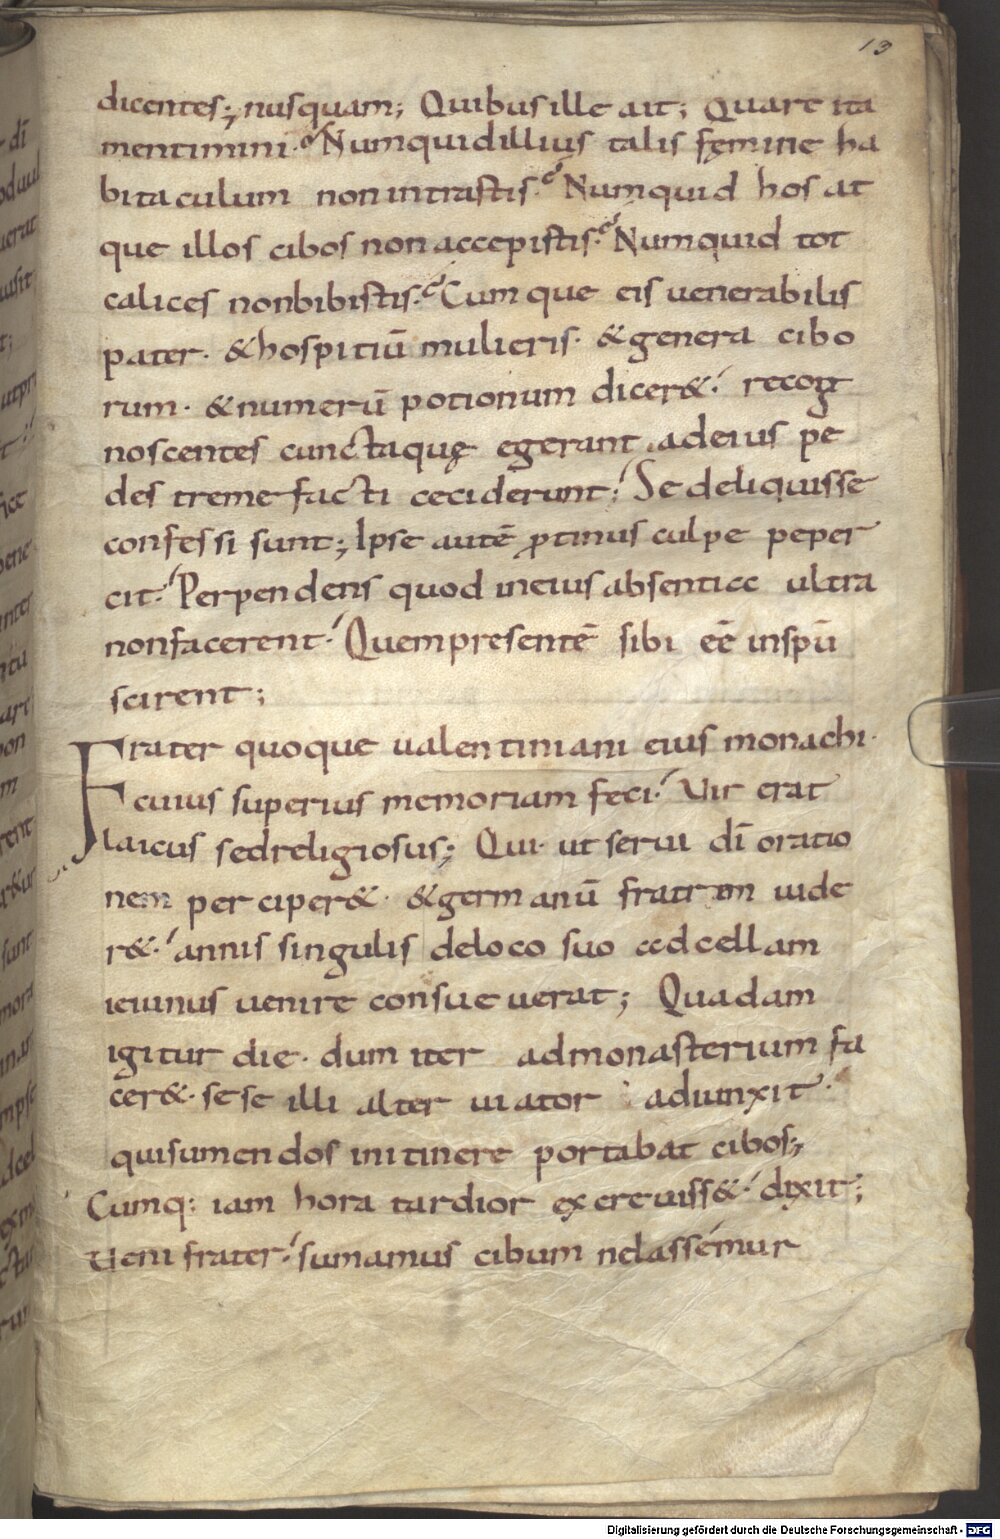 13
dicentes; nusquam; Quibus ille ait; Quare ita
mentimini. Numquid illius talis femine ha
bitaculum non intrastis. Numquid hos at
que illos cibos non accepistis. Numquid tot
calices non bibistis. Cumque eis uenerabilis
pater. & hospitiū mulieris. & genera cibo
rum. & numerū potionum dicer&. recog
noscentes cuncta quę egerant. ad eius pe
des tremefacti ceciderunt; Se deliquisse
confessi sunt; Ipse autē ꝓtinus culpe peper
cit. Perpendens quod in eius absentiae ultra
non facerent. Quem presentē sibi eē in spū
scirent;
Frater quoque ualentiniani eius monachi.
cuius superius memoriam feci. Uir erat
laicus sed religiosus; Qui. ut serui dī oratio
nem perciper&. & germanū fratrem uide
r&. annis singulis de loco suo ad cellam
ieiunus uenire consueuerat; Quadam
igitur die. dum iter ad monasterium fa
cer&. sese illi alter uiator adiunxit.
qui sumendos in itinere portabat cibos;
Cumq: iam hora tardior excreuiss&. dixit;
Ueni frater. sumamus cibum ne lassemur
Digitalisierung gefördert durch die Deutsche Forschungsgemeinschaft - DFG